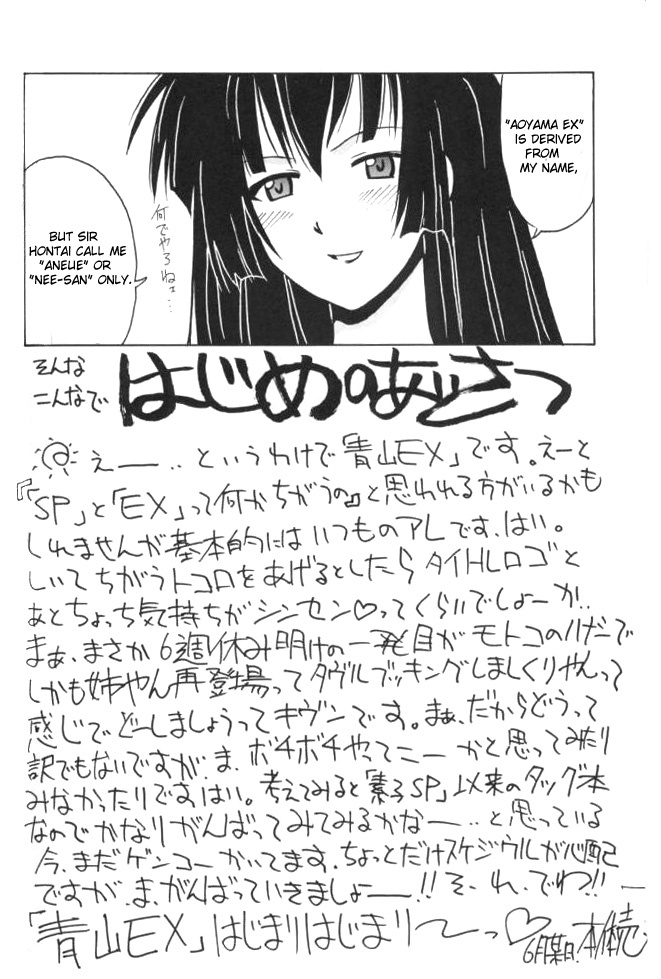 "AOYAMA EX"
IS DERIVED
FROM
MY NAME,
BUT SIR
HONTAI CALL ME
"ANEUE" OR
"NEE-SAN" ONLY.
何でやろねェ…
そんな
こんなで
はじめのあいさつ
えー——‥というわけで「青山EX」です。えーと
『「SP」と「EX」って何かちがうの』と思われる方がいるかも
しれませんが基本的にはいつものアレです、はい。
しいてちがうトコロをあげるとしたらタイトルロゴと
あとちょっち気持ちがシンセン♡ってくらいでしょーか‥
まぁ、まさか6週休み明けの一発目がモトコのハナシで
しかも姉やん再登場ってダブルブッキングしまくりやんって
感じでどーしましょうってキブンです。まぁ、だからどうって
訳でもないですが、ま、ボチボチやってこーかと思ってみたり
みなかったりですはい。考えてみると「素子SP」以来のタッグ本
なのでかなりがんばってみてみるかなー——‥と思っている
今、まだゲンコーかいてます、ちょっとだけスケジウルが心配
ですが、ま、がんばっていきましょー——!!そ、れ、でわ!!
「青山EX」はじまりはじまり〜っ♡
6月某日、本体売